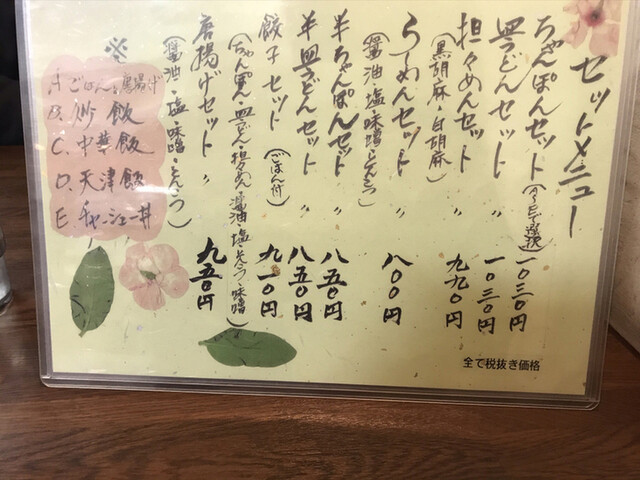 セットメニュー
ちゃんぽんセット(A〜Eで選択) 一〇三〇円
皿うどんセット 〃 一〇三〇円
担々めんセット 〃 九九〇円
(黒胡麻・白胡麻)
らーめんセット 〃 八〇〇円
(醤油・塩・味噌・とんこつ)
半ちゃんぽんセット 〃 八五〇円
半皿うどんセット 〃 八五〇円
餃子セット(ごはん付) 九一〇円
(ちゃんぽん・皿うどん・担々めん・醤油・塩・とんこつ・味噌)
唐揚げセット 〃 九五〇円
(醤油・塩・味噌・とんこつ)
※
A. ごはん&鳥揚げ
B. 炒飯
C. 中華飯
D. 天津飯
E. チャーシュー丼
全て税抜き価格